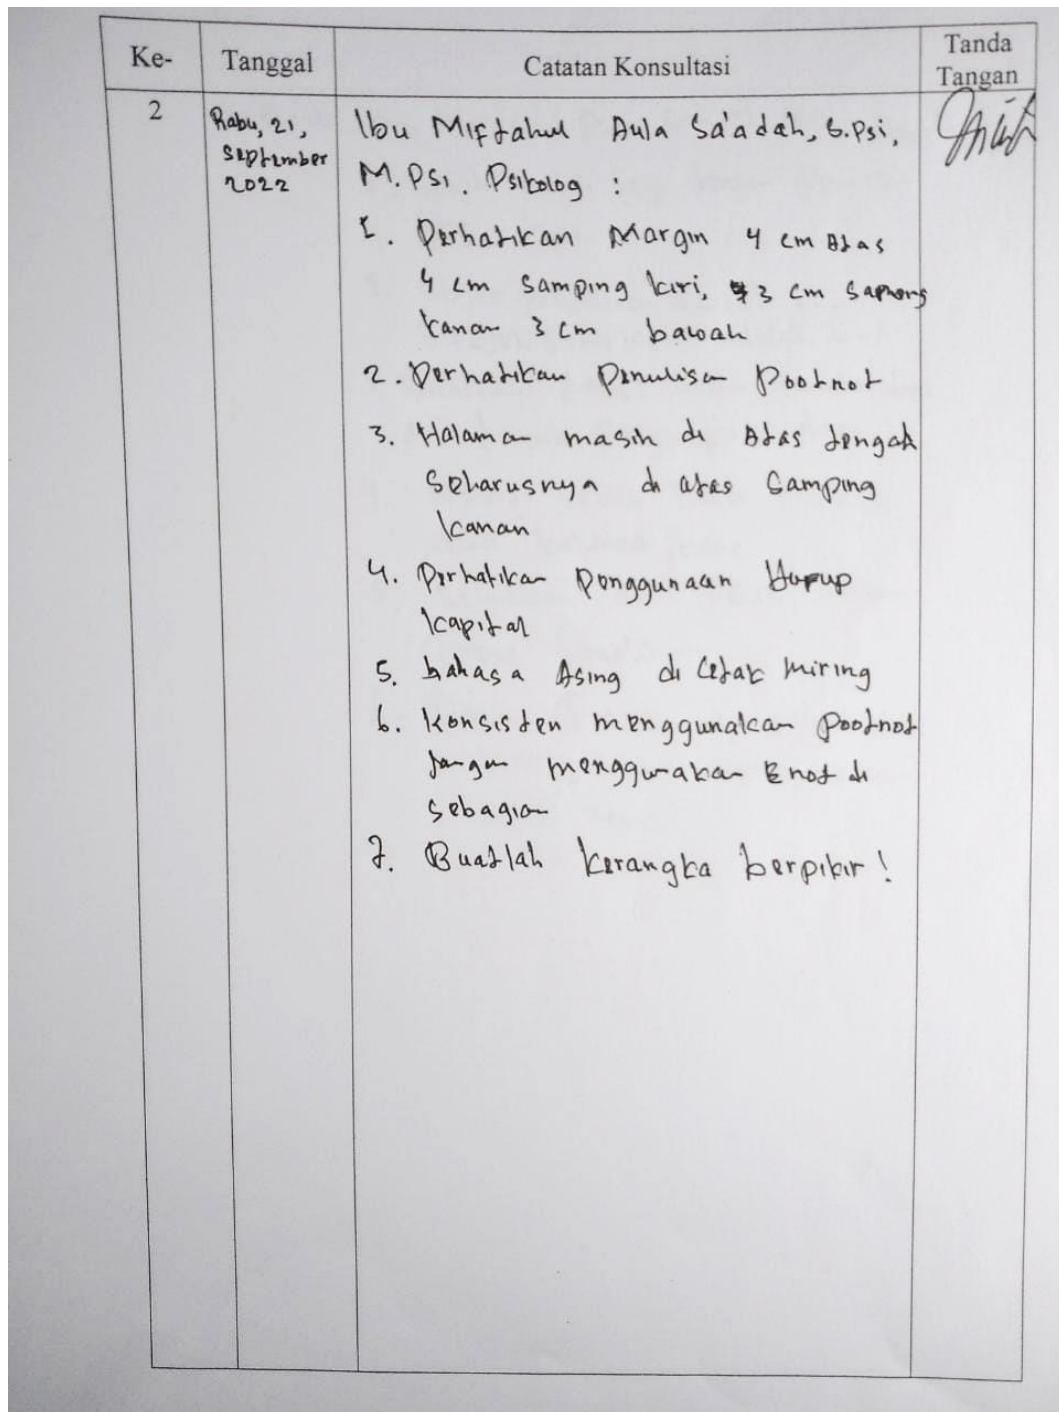 Ke-
Tanggal
Catatan Konsultasi
Tanda
Tangan
2
Rabu, 21,
September
2022
Ibu Miftahul Aula Sa'adah, S.Psi,
M.PSi. Psikolog :
1. Perhatikan Margin 4 cm Atas
4 cm Samping kiri, 3 cm
kanan 3 cm bawah
2. Perhatikan Penulisan Pootnot
3. Halaman masih di Atas tengah
Seharusnya di atas Samping
kanan
4. Perhatikan Penggunaan Hupup
kapital
5. bahasa Asing di Cetak Miring
6. Konsisten menggunakan Pootnot
Jangan menggunakan Enot di
Sebagian
7. Buatlah kerangka berpikir !